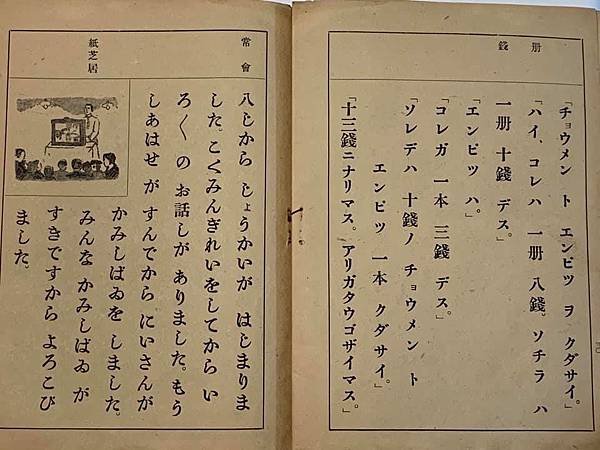 册
錢
「チョウメン ト エンピツ ヲ クダサイ。」
「ハイ、コレハ 一册 八錢。ソチラ ハ
一册 十錢 デス。」
「エンピツ ハ。」
「コレガ 一本 三錢 デス。」
「ソレデハ 十錢ノ チョウメン ト
エンピツ 一本 クダサイ。」
「十三錢ニナリマス。アリガタウゴザイマス。」
常會
紙芝居
八じから じょうかいが はじまりま
した。こくみんぎれいをしてから い
ろ〱の お話しが ありました。もう
しあはせ が すんでから にいさんが
かみしばゐを しました。
みんな かみしばゐ が
すきですから よろこび
ました。